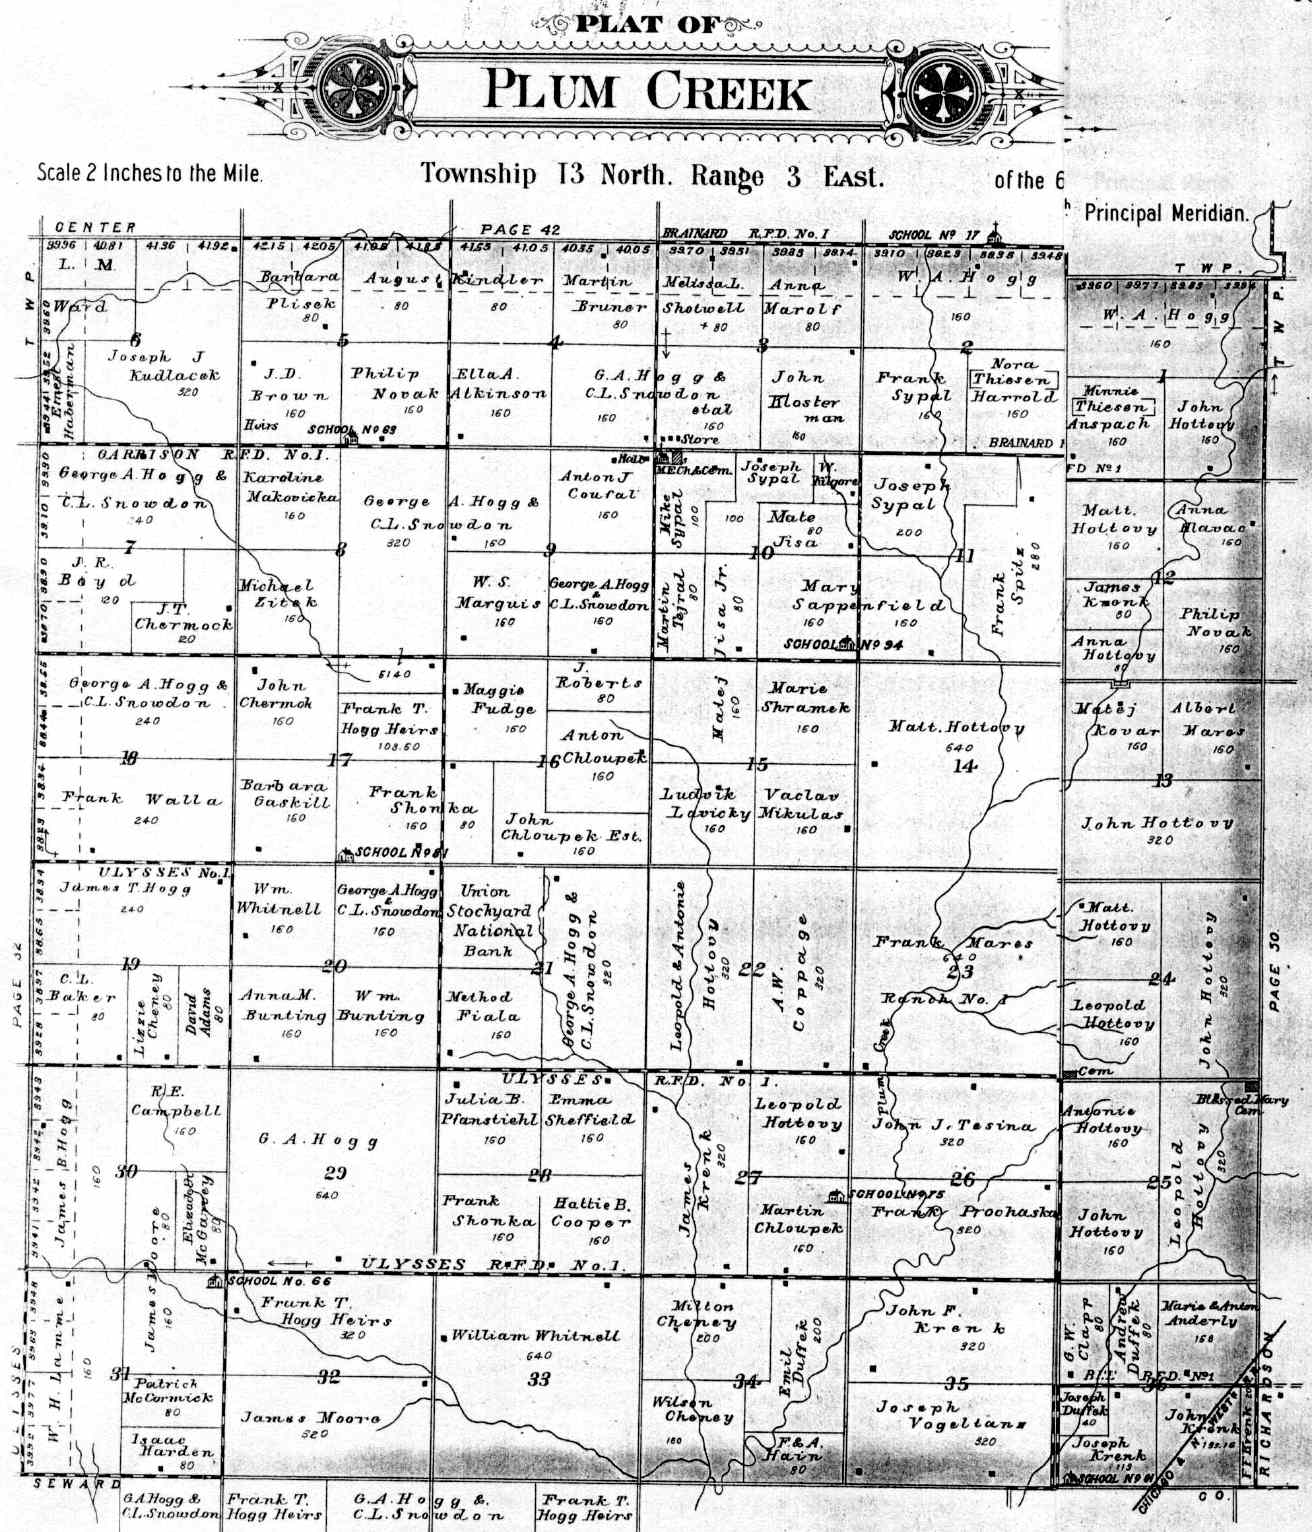 PLAT OF
PLUM CREEK
Scale 2 Inches to the Mile.
Township 13 North. Range 3 East.
of the 6
h Principal Meridian.
CENTER
PAGE 42
BRAINARD R.F.D. No.1
SCHOOL Nº 17
TWP.
L. M.
Ward
6
Joseph J
Kudlacek
320
Ernest
Haberman
Barbara
Plisek
80
August Kindler
80
80
5
J.D.
Brown
160
Heirs
Philip
Novak
160
SCHOOL No 69
Martin
Bruner
80
4
Ella A.
Atkinson
160
G.A. Hogg &
C.L. Snowdon
160
et al
160
Store
Melissa L.
Shotwell
80
Anna
Marolf
80
3
John
Kloster
man
160
W. A. Hogg
160
2
Frank
Sypal
160
Nora
Thiesen
Harrold
160
BRAINARD
W. A. Hogg
160
1
Minnie
Thiesen
Anspach
160
John
Hottovy
160
FD Nº 1
GARRISON R.F.D. No.1.
George A. Hogg &
C.L. Snowdon
240
7
J. R.
Boyd
120
J.T.
Chermock
20
Karoline
Makovicka
160
George A. Hogg &
C.L. Snowdon
320
160
8
Michael
Zitek
160
Anton J
Coufal
160
Hall
9
W. S.
Marquis
160
George A. Hogg
&
C.L. Snowdon
160
M.E.Ch & Cem.
Mike
Sypal
100
Joseph
Sypal
100
W.
Kilgore
Mate
80
Jisa
10
Martin
Tejral
80
Jisa Jr.
80
Mary
Sappenfield
160
160
SCHOOL Nº 94
Joseph
Sypal
200
11
Frank
Spitz
280
Matt.
Hottovy
160
Anna
Hlavac
160
12
James
Kmonk
80
Anna
Hottovy
80
Philip
Novak
160
George A. Hogg &
C.L. Snowdon
240
18
Frank Walla
240
John
Chermok
160
Frank T.
Hogg Heirs
108.60
17
Barbara
Gaskill
160
Frank
Shonka
160
80
SCHOOL Nº 81
Maggie
Fudge
160
J.
Roberts
80
Anton
Chloupek
160
16
John
Chloupek Est.
160
Matej
160
Marie
Shramek
160
15
Ludvik
Lavicky
160
Vaclav
Mikulas
160
Matt. Hottovy
640
14
Matej
Kovar
160
Albert
Mares
160
13
John Hottovy
320
ULYSSES No.1
James T. Hogg
240
19
C.L.
Baker
80
Lizzie
Cheney
80
David
Adams
80
Wm.
Whitnell
160
George A. Hogg
&
C.L. Snowdon
160
20
Anna M.
Bunting
160
Wm.
Bunting
160
Union
Stockyard
National
Bank
21
Method
Fiala
160
George A. Hogg &
C.L. Snowdon
320
Leopold & Antonie
Hottovy
320
22
A.W.
Coppage
320
Frank Mares
640
23
Ranch No. 1
Plum Creek
Matt.
Hottovy
160
24
Leopold
Hottovy
160
John Hottovy
320
Cem
PAGE 32
PAGE 30
James B. Hogg
160
R.E.
Campbell
160
30
Elizabeth
McGarvey
80
G.A. Hogg
29
640
ULYSSES R.F.D. No 1.
Julia B.
Pfanstiehl
160
Emma
Sheffield
160
28
Frank
Shonka
160
Hattie B.
Cooper
160
James
Krenk
320
Leopold
Hottovy
160
27
Martin
Chloupek
160
SCHOOL Nº 75
John J. Tesina
320
26
Frank Prochaska
320
Antonie
Hottovy
160
25
John
Hottovy
160
Leopold
Hottovy
320
Blessed Mary
Cem
ULYSSES R.F.D. No.1.
SCHOOL No. 66
W. H. Lamme
160
James Moore
80
160
31
Patrick
McCormick
80
Isaac
Harden
80
Frank T.
Hogg Heirs
320
32
James Moore
320
William Whitnell
640
33
Milton
Cheney
200
34
Emil
Duffek
200
Wilson
Cheney
160
F & A.
Hain
80
John F.
Krenk
320
35
Joseph
Vogeltanz
320
G.W.
Clapp
80
Andrew
Duffek
80
Marie & Anton
Anderly
158
36
R.F.D. Nº 1
Joseph
Duffek
40
Joseph
Krenk
113
John
Krenk
SCHOOL Nº 61
CHICAGO & N. WESTR
RICHARDSON
ULYSSES
SEWARD
CO.
G.A. Hogg &
C.L. Snowdon
Frank T.
Hogg Heirs
G.A. Hogg &.
C.L. Snowdon
Frank T.
Hogg Heirs